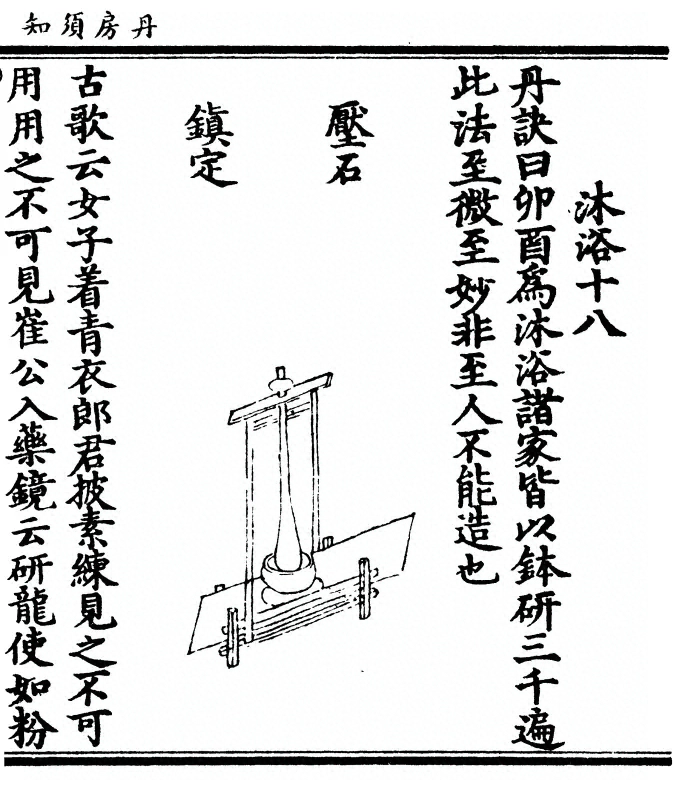 丹房須知
沐浴十八
丹訣曰卯酉爲沐浴諸家皆以鉢研三千遍
此法至微至妙非至人不能造也
壓石
鎮定
古歌云女子着青衣郎君披素練見之不可
用用之不可見崔公入藥鏡云研龍使如粉